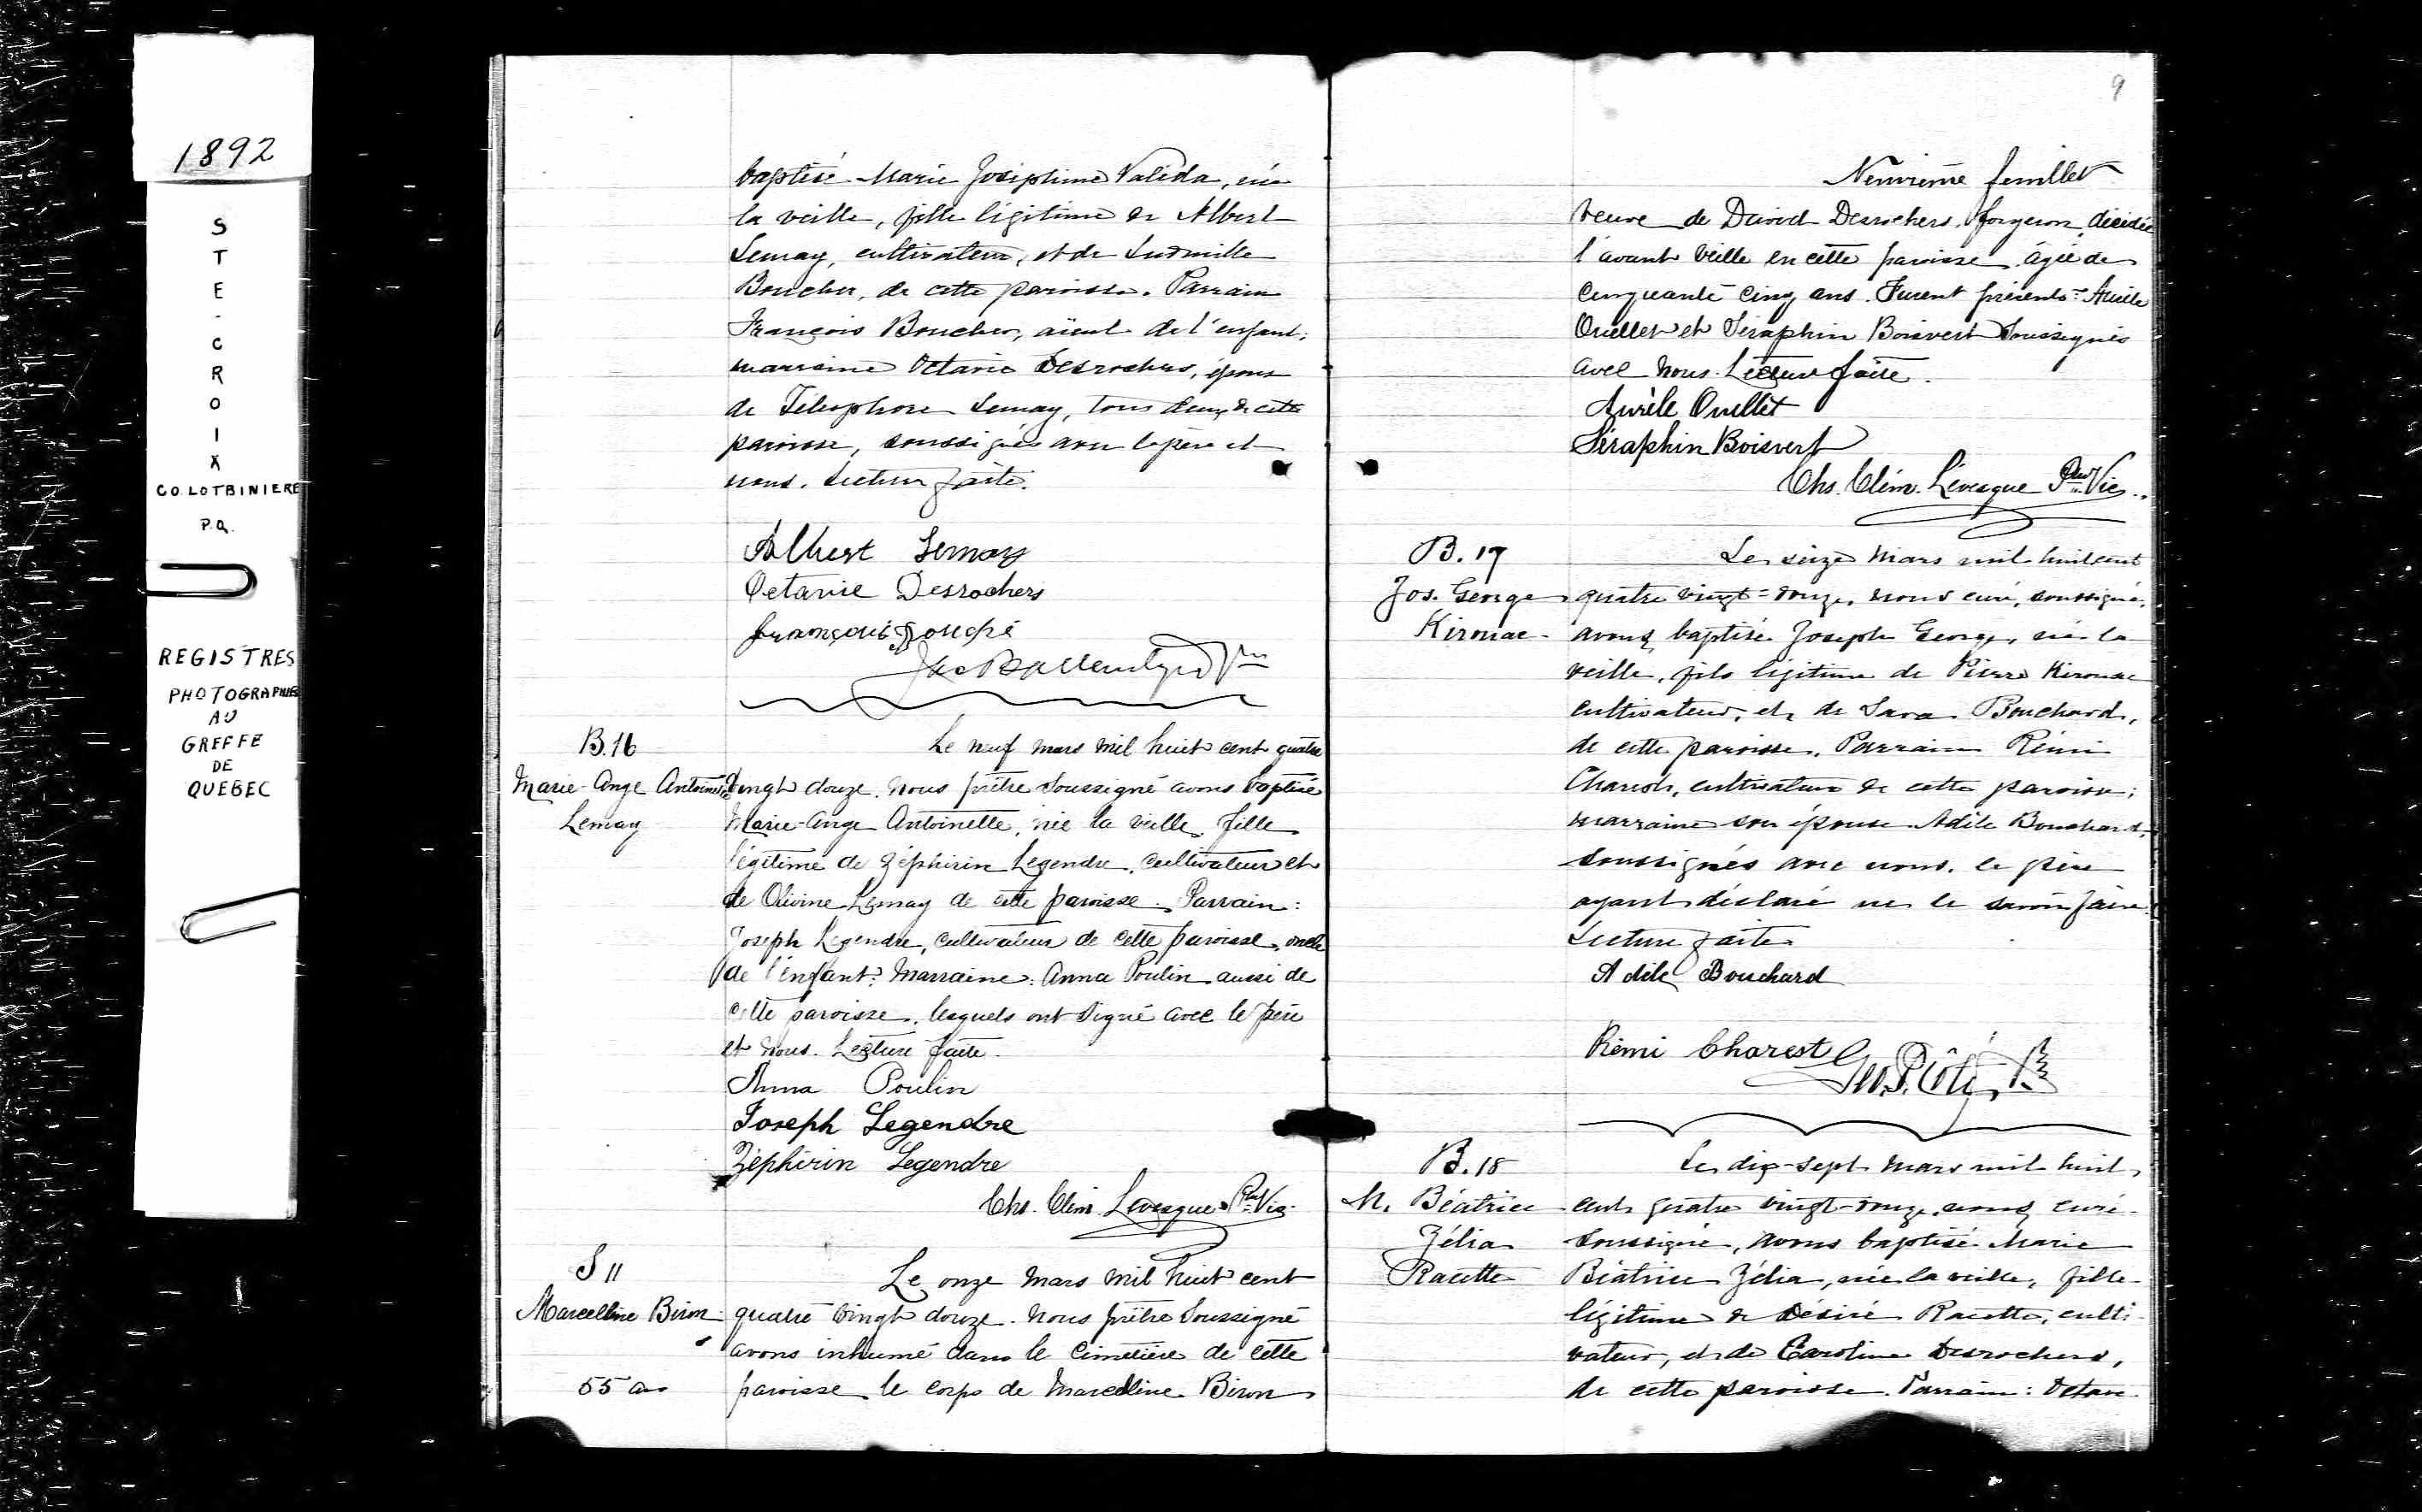 1892
S
T
E
.
C
R
O
I
X
CO. LOTBINIERE
P.Q.
REGISTRES
PHOTOGRAPHIES
AU
GREFFE
DE
QUEBEC
baptisé Marie Josephine Valéda, née
la veille, fille légitime de Albert
Lemay, cultivateur, et de Ludmille
Boucher, de cette paroisse. Parrain
François Boucher, aïeul de l'enfant;
marraine Octavie Desrochers, épouse
de Télesphore Lemay, tous deux de cette
paroisse, soussignés avec le père et
nous. Lecture faite.
Albert Lemay
Octavie Desrochers
françois Bouché
B.16
Marie-Ange Antoinette
Lemay
Le neuf mars mil huit cent quatre
vingt douze. nous prêtre soussigné avons baptisé
Marie-Ange Antoinette, née la veille, fille
légitime de Zéphirin Legendre, cultivateur et
de Olivine Lemay de cette paroisse. Parrain:
Joseph Legendre, cultivateur de cette paroisse, oncle
de l'enfant: Marraine: Anna Poulin aussi de
cette paroisse, lesquels ont signé avec le père
et nous. Lecture faite.
Anna Poulin
Joseph Legendre
Zéphirin Legendre
Chs. Clém. Lévesque Ptre Vic.
S 11
Marcelline Biron
55 ans
Le onze mars mil huit cent
quatre vingt douze. Nous prêtre soussigné
avons inhumé dans le cimetière de cette
paroisse le corps de Marcelline Biron
9
Neuvième feuillet
veuve de David Desrochers, forgeron, décédée
l'avant veille en cette paroisse, âgée de
cinquante cinq ans. Furent présents: Aurèle
Ouellet et Séraphin Boisvert soussignés
avec nous. Lecture faite.
Aurèle Ouellet
Séraphin Boisvert
Chs. Clém. Lévesque Ptre Vic.
B. 17
Jos. George
Kirouac
Le seize mars mil huit cent
quatre vingt=douze, nous curé, soussigné,
avons baptisé Joseph George, né la
veille, fils légitime de Pierre Kirouac
cultivateur, et de Sara Bouchard,
de cette paroisse. Parrain Rémi
Charest, cultivateur de cette paroisse;
marraine son épouse Adèle Bouchard,
soussignés avec nous, le père
ayant déclaré ne le savoir faire.
Lecture faite
Adèle Bouchard
Rémi Charest
B. 18
M. Béatrice
Zélia
Racette
Le dix-sept mars mil huit
cent quatre vingt-douze, nous, curé
soussigné, avons baptisé Marie
Béatrice Zélia, née la veille, fille
légitime de Désiré Racette, culti-
vateur, et de Caroline Desrochers,
de cette paroisse. Parrain: Octave